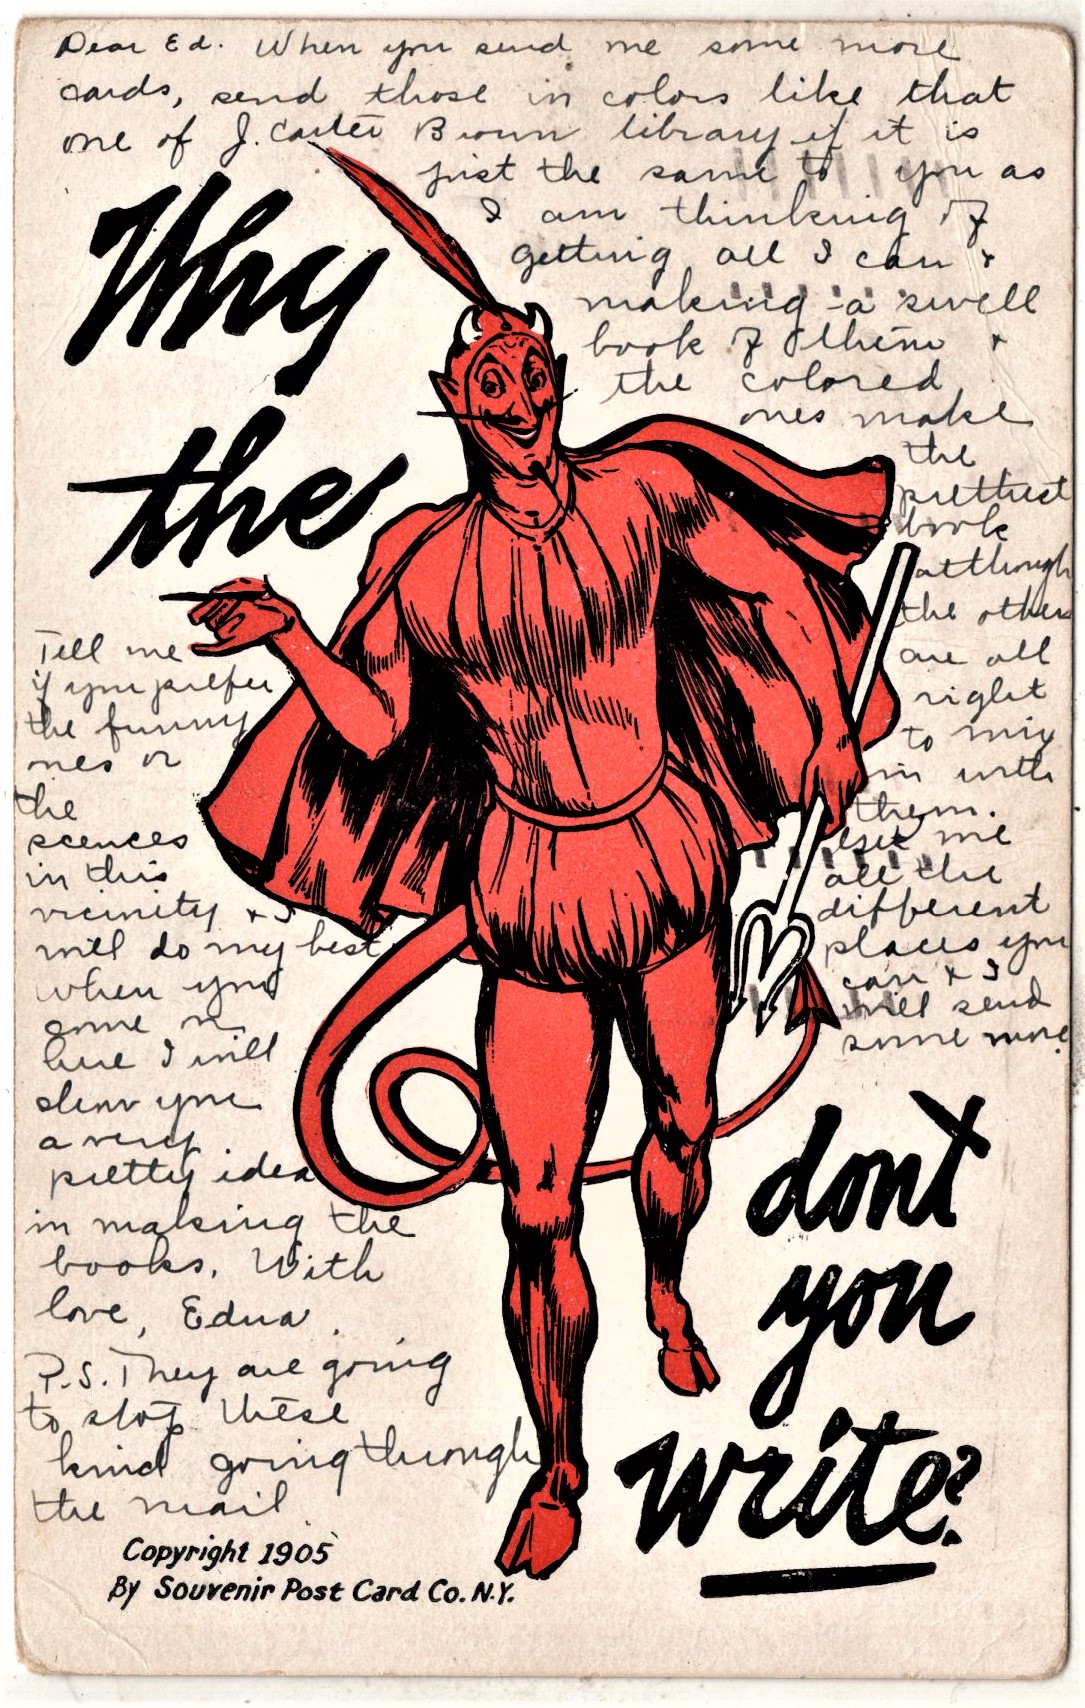 Dear Ed. When you send me some more
cards, send those in colors like that
one of J. Carter Brown library if it is
just the same to you as
I am thinking of
getting all I can &
making a swell
book of them &
the colored
ones make
the
prettiest
book
although
the others
are all
right
to mix
in with
them.
Get me
all the
different
places you
can & I
will send
some more.
Why
the
Tell me
if you prefer
the funny
ones or
the
scences
in this
vicinity & I
will do my best
when you
come in
here I will
show you
a very
pretty idea
in making the
books. With
love, Edna.
P.S. They are going
to stop these
kind going through
the mail.
dont
you
write?
Copyright 1905
By Souvenir Post Card Co. N.Y.